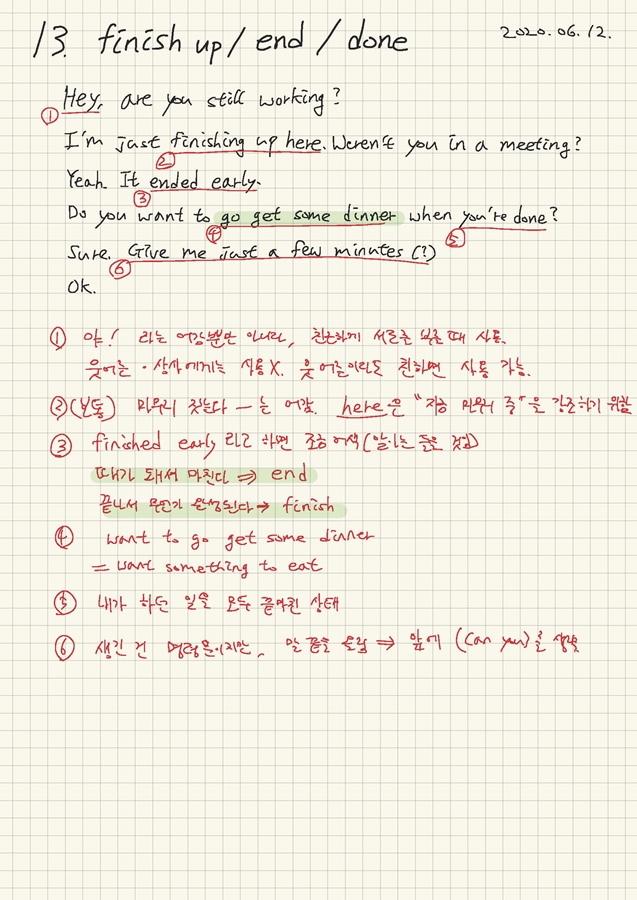 13. finish up / end / done
2020.06.12.
Hey, are you still working?
①
I'm just finishing up here. Weren't you in a meeting?
②
Yeah. It ended early.
③
Do you want to go get some dinner when you're done?
④ ⑤
Sure. Give me just a few minutes (?)
⑥
Ok.
① 야! 라는 어감뿐만 아니라, 친근하게 서로를 부를 때 사용.
웃어른·상사에게는 사용X. 웃어른이라도 친하면 사용 가능.
②(보통) 마무리 짓는다 ―는 어감. here은 "지금 마무리 중"을 강조하기 위함
③ finished early 라고 하면 조금 어색(말이는 들은 것임)
때가 돼서 마친다 ⇒ end
끝나서 무언가 완성된다 → finish
④ want to go get some dinner
= want something to eat
⑤ 내가 하던 일을 모두 끝마친 상태
⑥ 생긴 건 명령문이지만, 말 끝을 올림 ⇒ 앞에 (Can you)를 생략